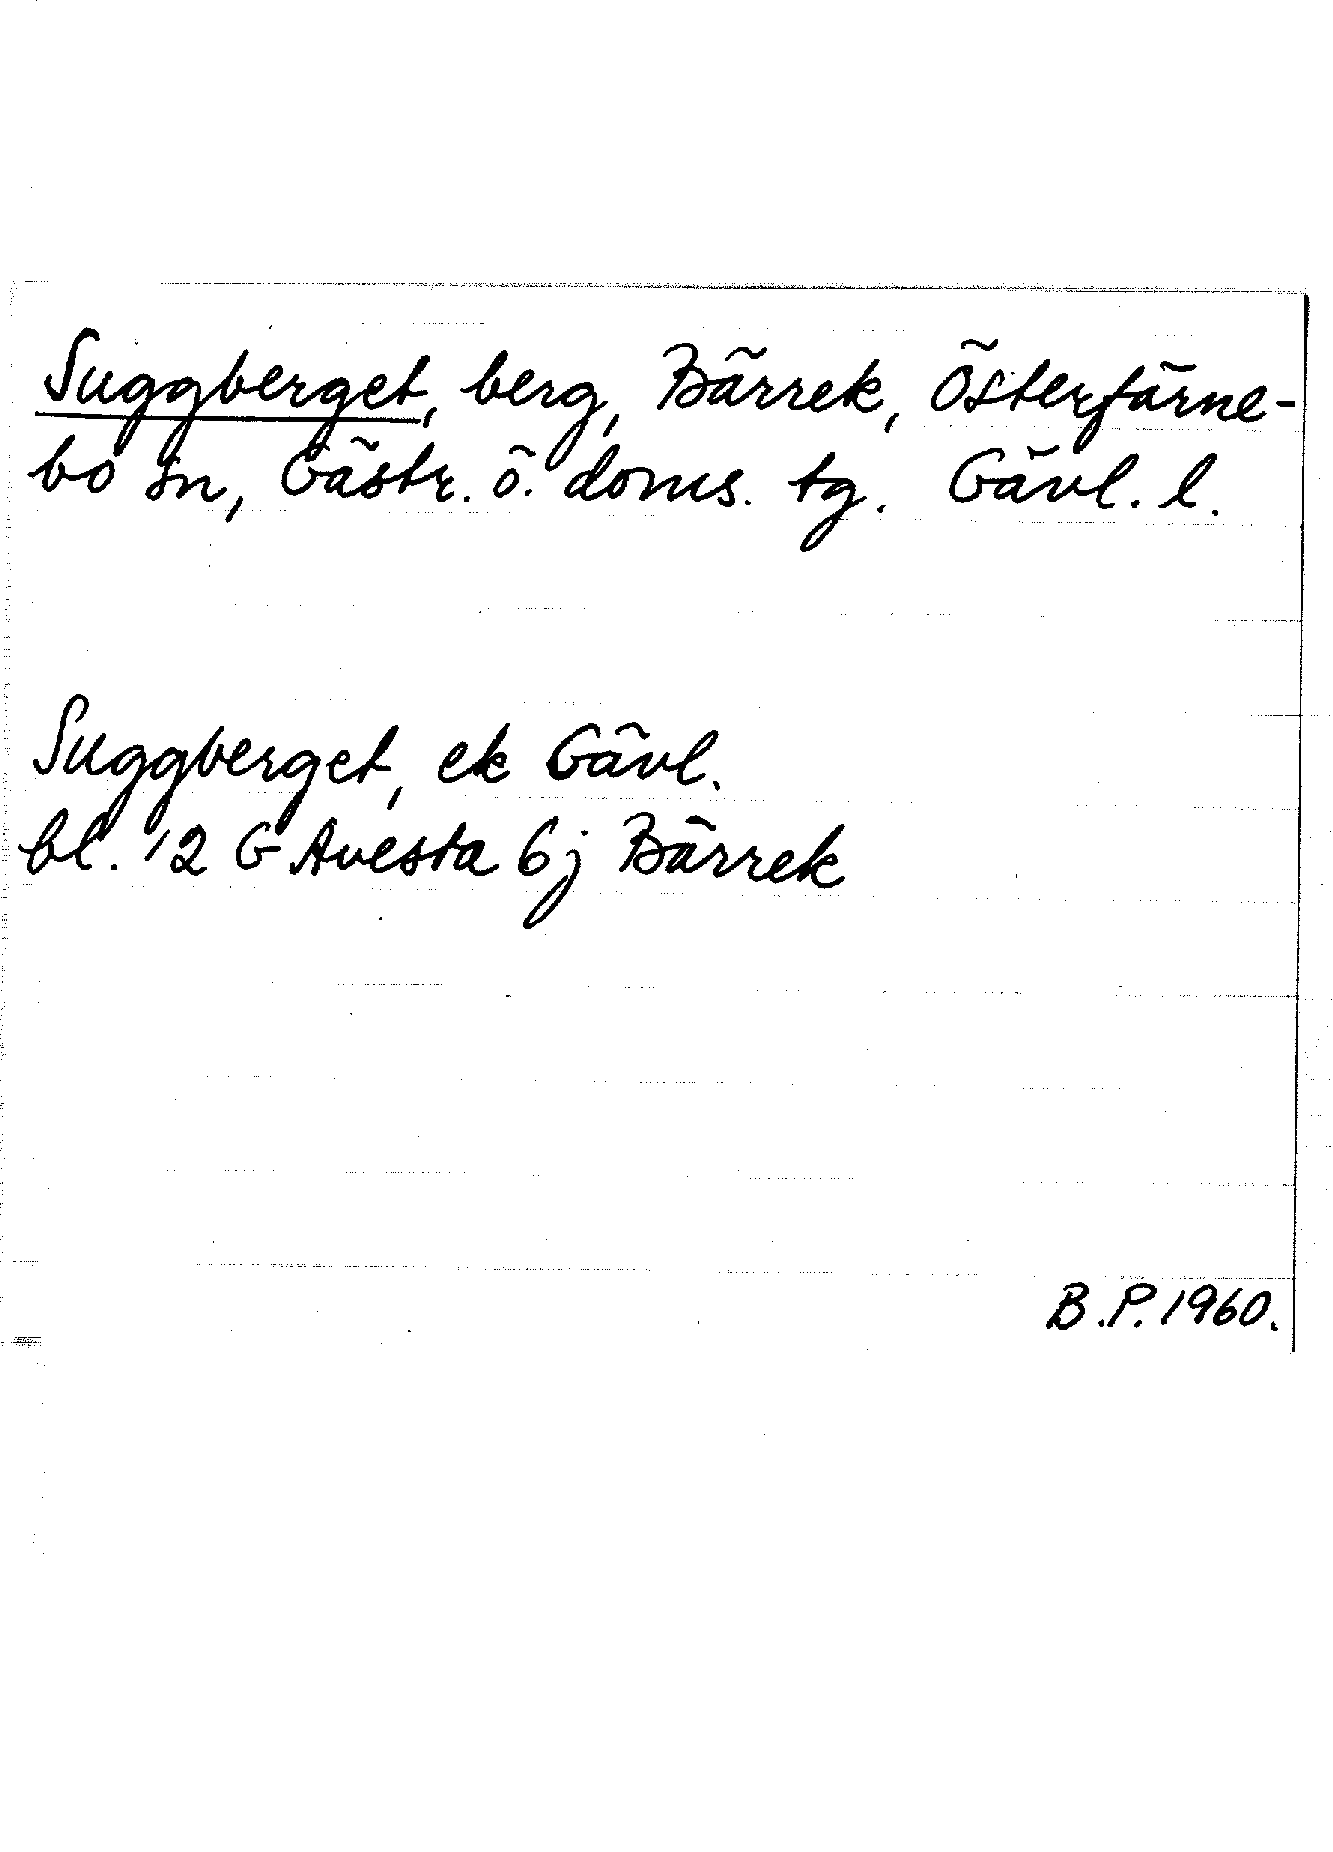 Suggberget, berg, Bärrek, Österfärne-
bo sn, Gästr. ö. doms. tg. Gävl. l.
Suggberget, ek Gävl.
bl. 12 G Avesta 6j Bärrek
B.P. 1960.